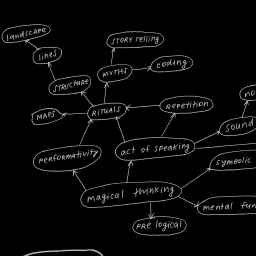 landscape
lines
STORYTELLING
STRUCTURE
MYTHS
coding
MAPS
RITUALS
REPETITION
no
SOUND
PERFORMATIVITY
act of speaking
SYMBOLIC
magical thinking
mental fun
PRE logical